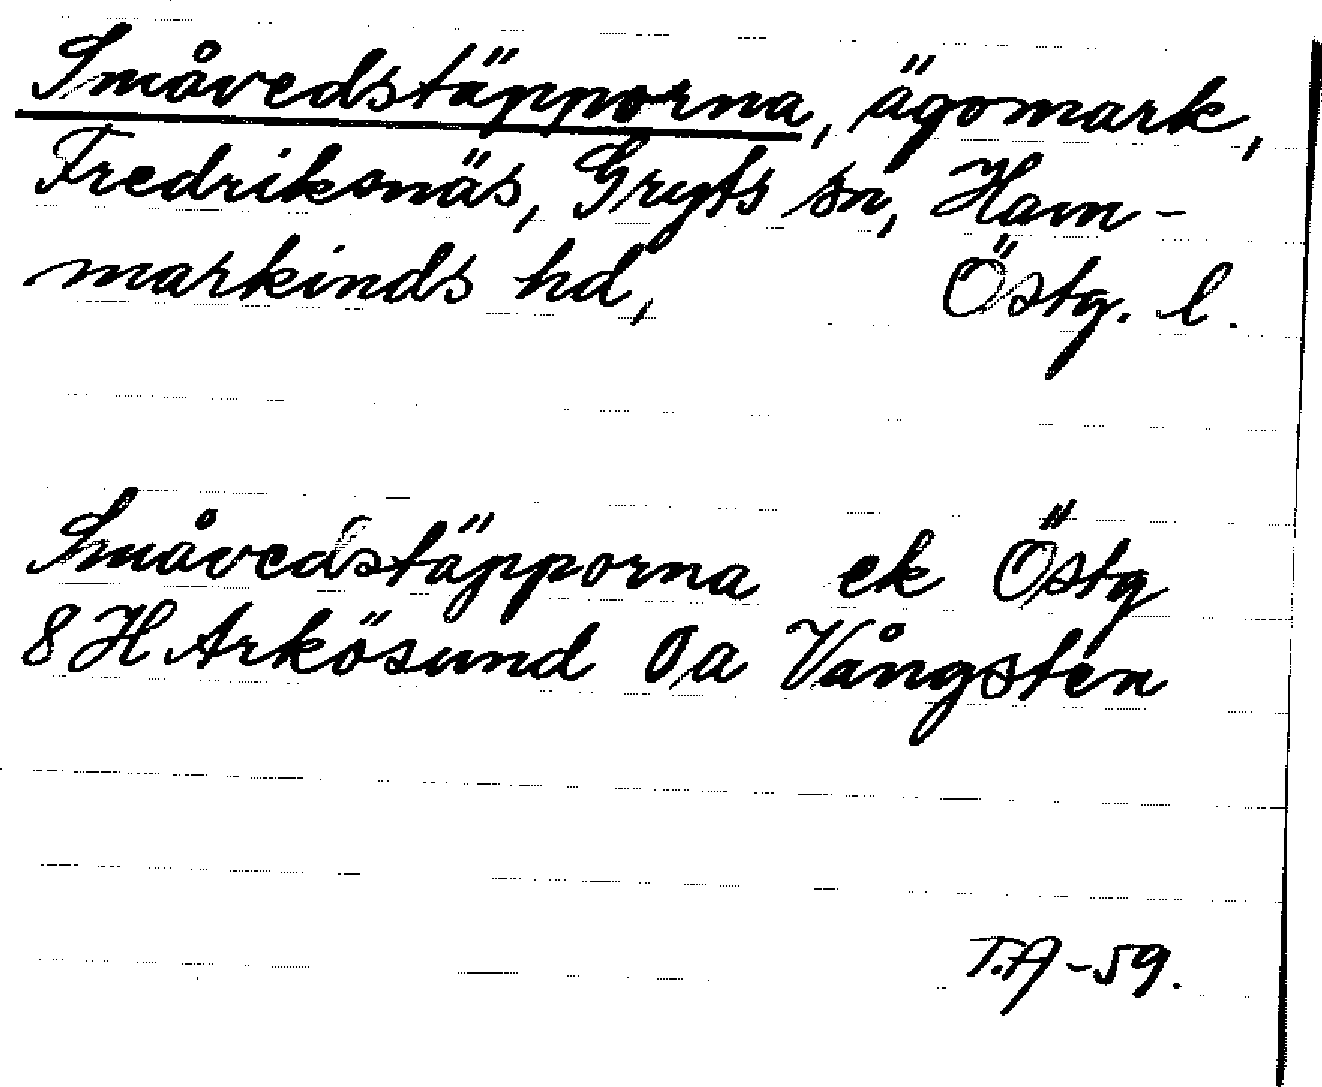 Småvedstäpporna, ägomark,
Fredriksnäs, Gryts sn, Ham-
markinds hd, Östg. l.
Småvedstäpporna ek Östg
8 H Arkösund 0a Vångsten
T.A -59.